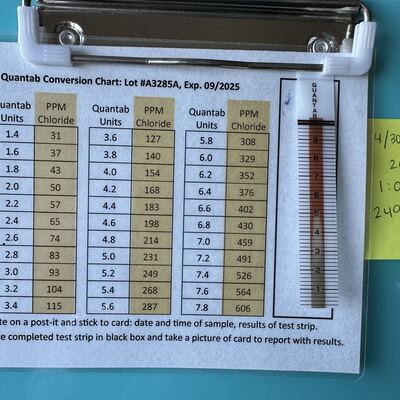 Quantab Conversion Chart: Lot #A3285A, Exp. 09/2025
uantab Units PPM Chloride Quantab Units PPM Chloride Quantab Units PPM Chloride
1.4 31 3.6 127 5.8 308
1.6 37 3.8 140 6.0 329
1.8 43 4.0 154 6.2 352
2.0 50 4.2 168 6.4 376
2.2 57 4.4 183 6.6 402
2.4 65 4.6 198 6.8 430
2.6 74 4.8 214 7.0 459
2.8 83 5.0 231 7.2 491
3.0 93 5.2 249 7.4 526
3.2 104 5.4 268 7.6 564
3.4 115 5.6 287 7.8 606
te on a post-it and stick to card: date and time of sample, results of test strip.
ce completed test strip in black box and take a picture of card to report with results.
QUANTAB
9
8
7
6
5
4
3
2
1
4/30
1:0
240